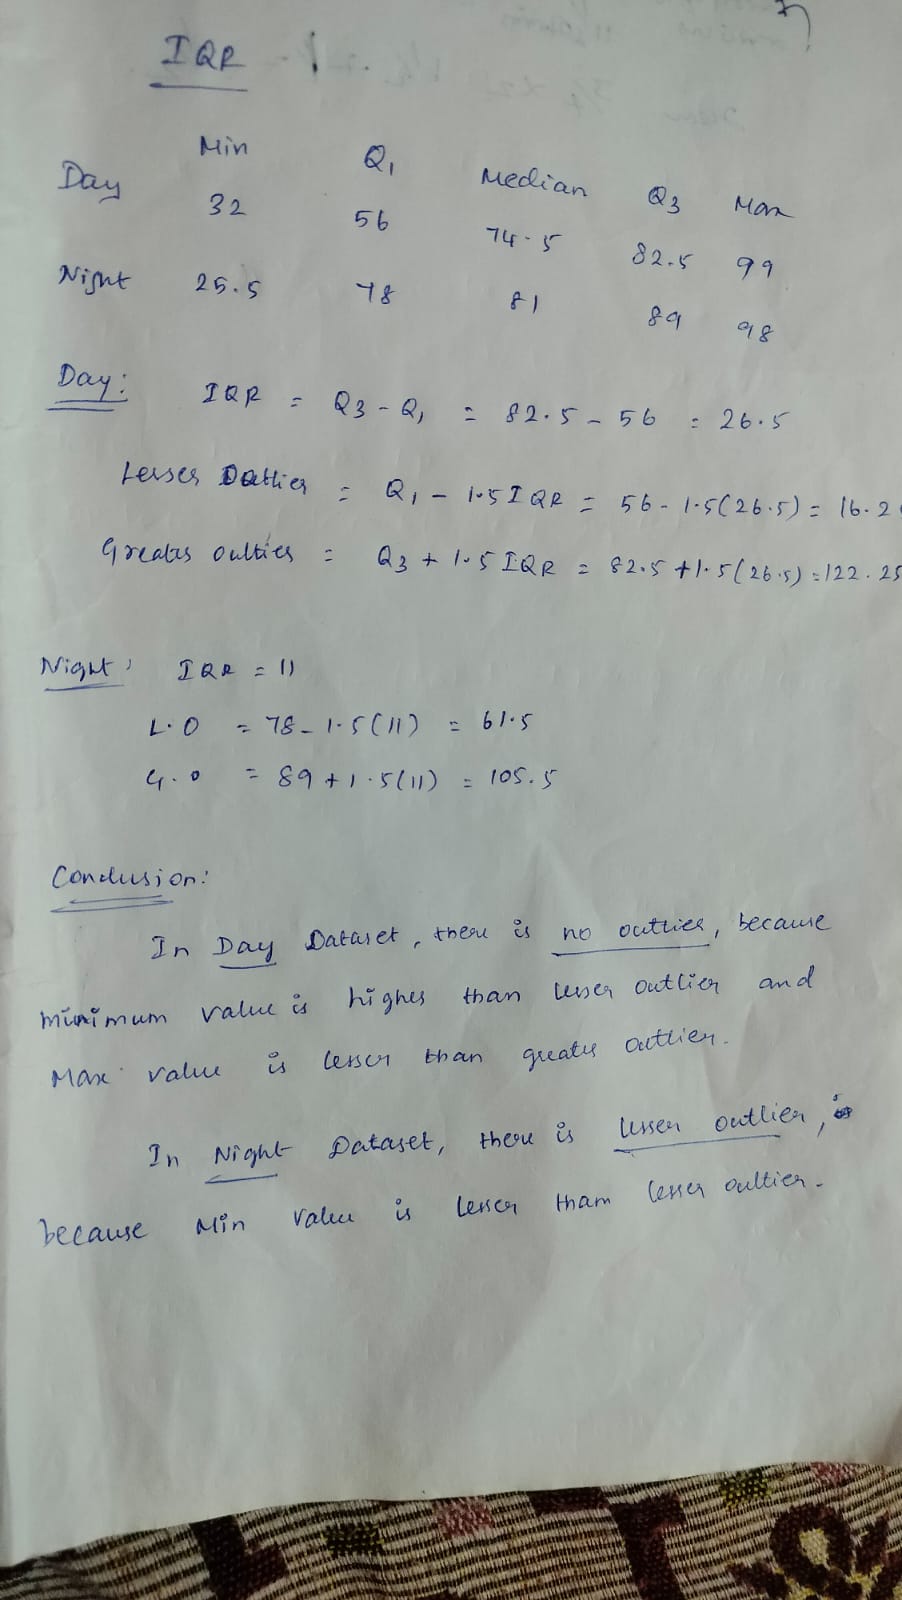 IQR
Min Q1 Median Q3 Max
Day 32 56 74.5 82.5 99
Night 25.5 78 81 89 98
Day:
IQR = Q3 - Q1 = 82.5 - 56 = 26.5
Lesser Outlier = Q1 - 1.5 IQR = 56 - 1.5(26.5) = 16.2
Greater outlier = Q3 + 1.5 IQR = 82.5 + 1.5(26.5) = 122.25
Night: IQR = 11
L.O = 78 - 1.5(11) = 61.5
G.O = 89 + 1.5(11) = 105.5
Conclusion:
In Day Dataset, there is no outlier, because
minimum value is higher than lesser outlier and
Max value is lesser than greater outlier.
In Night Dataset, there is lesser outlier,
because Min value is lesser than lesser outlier.